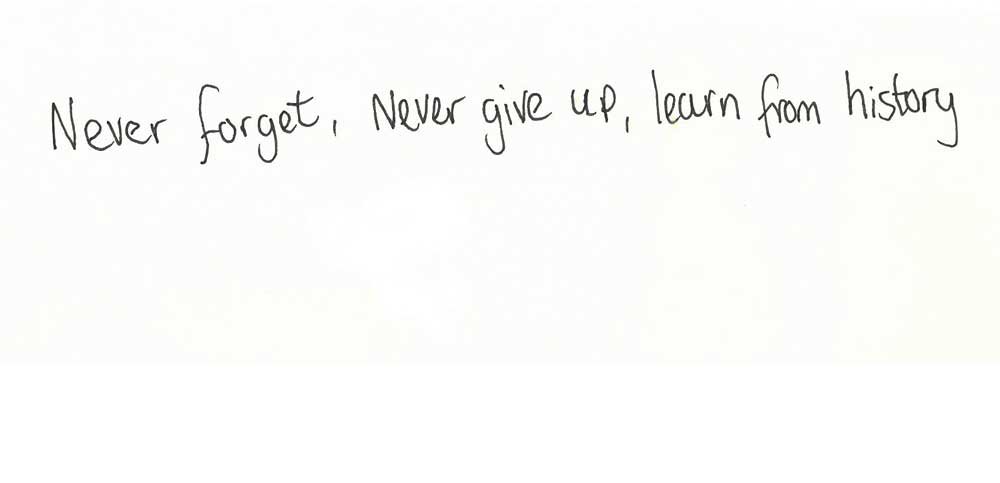 Never forget, Never give up, learn from history